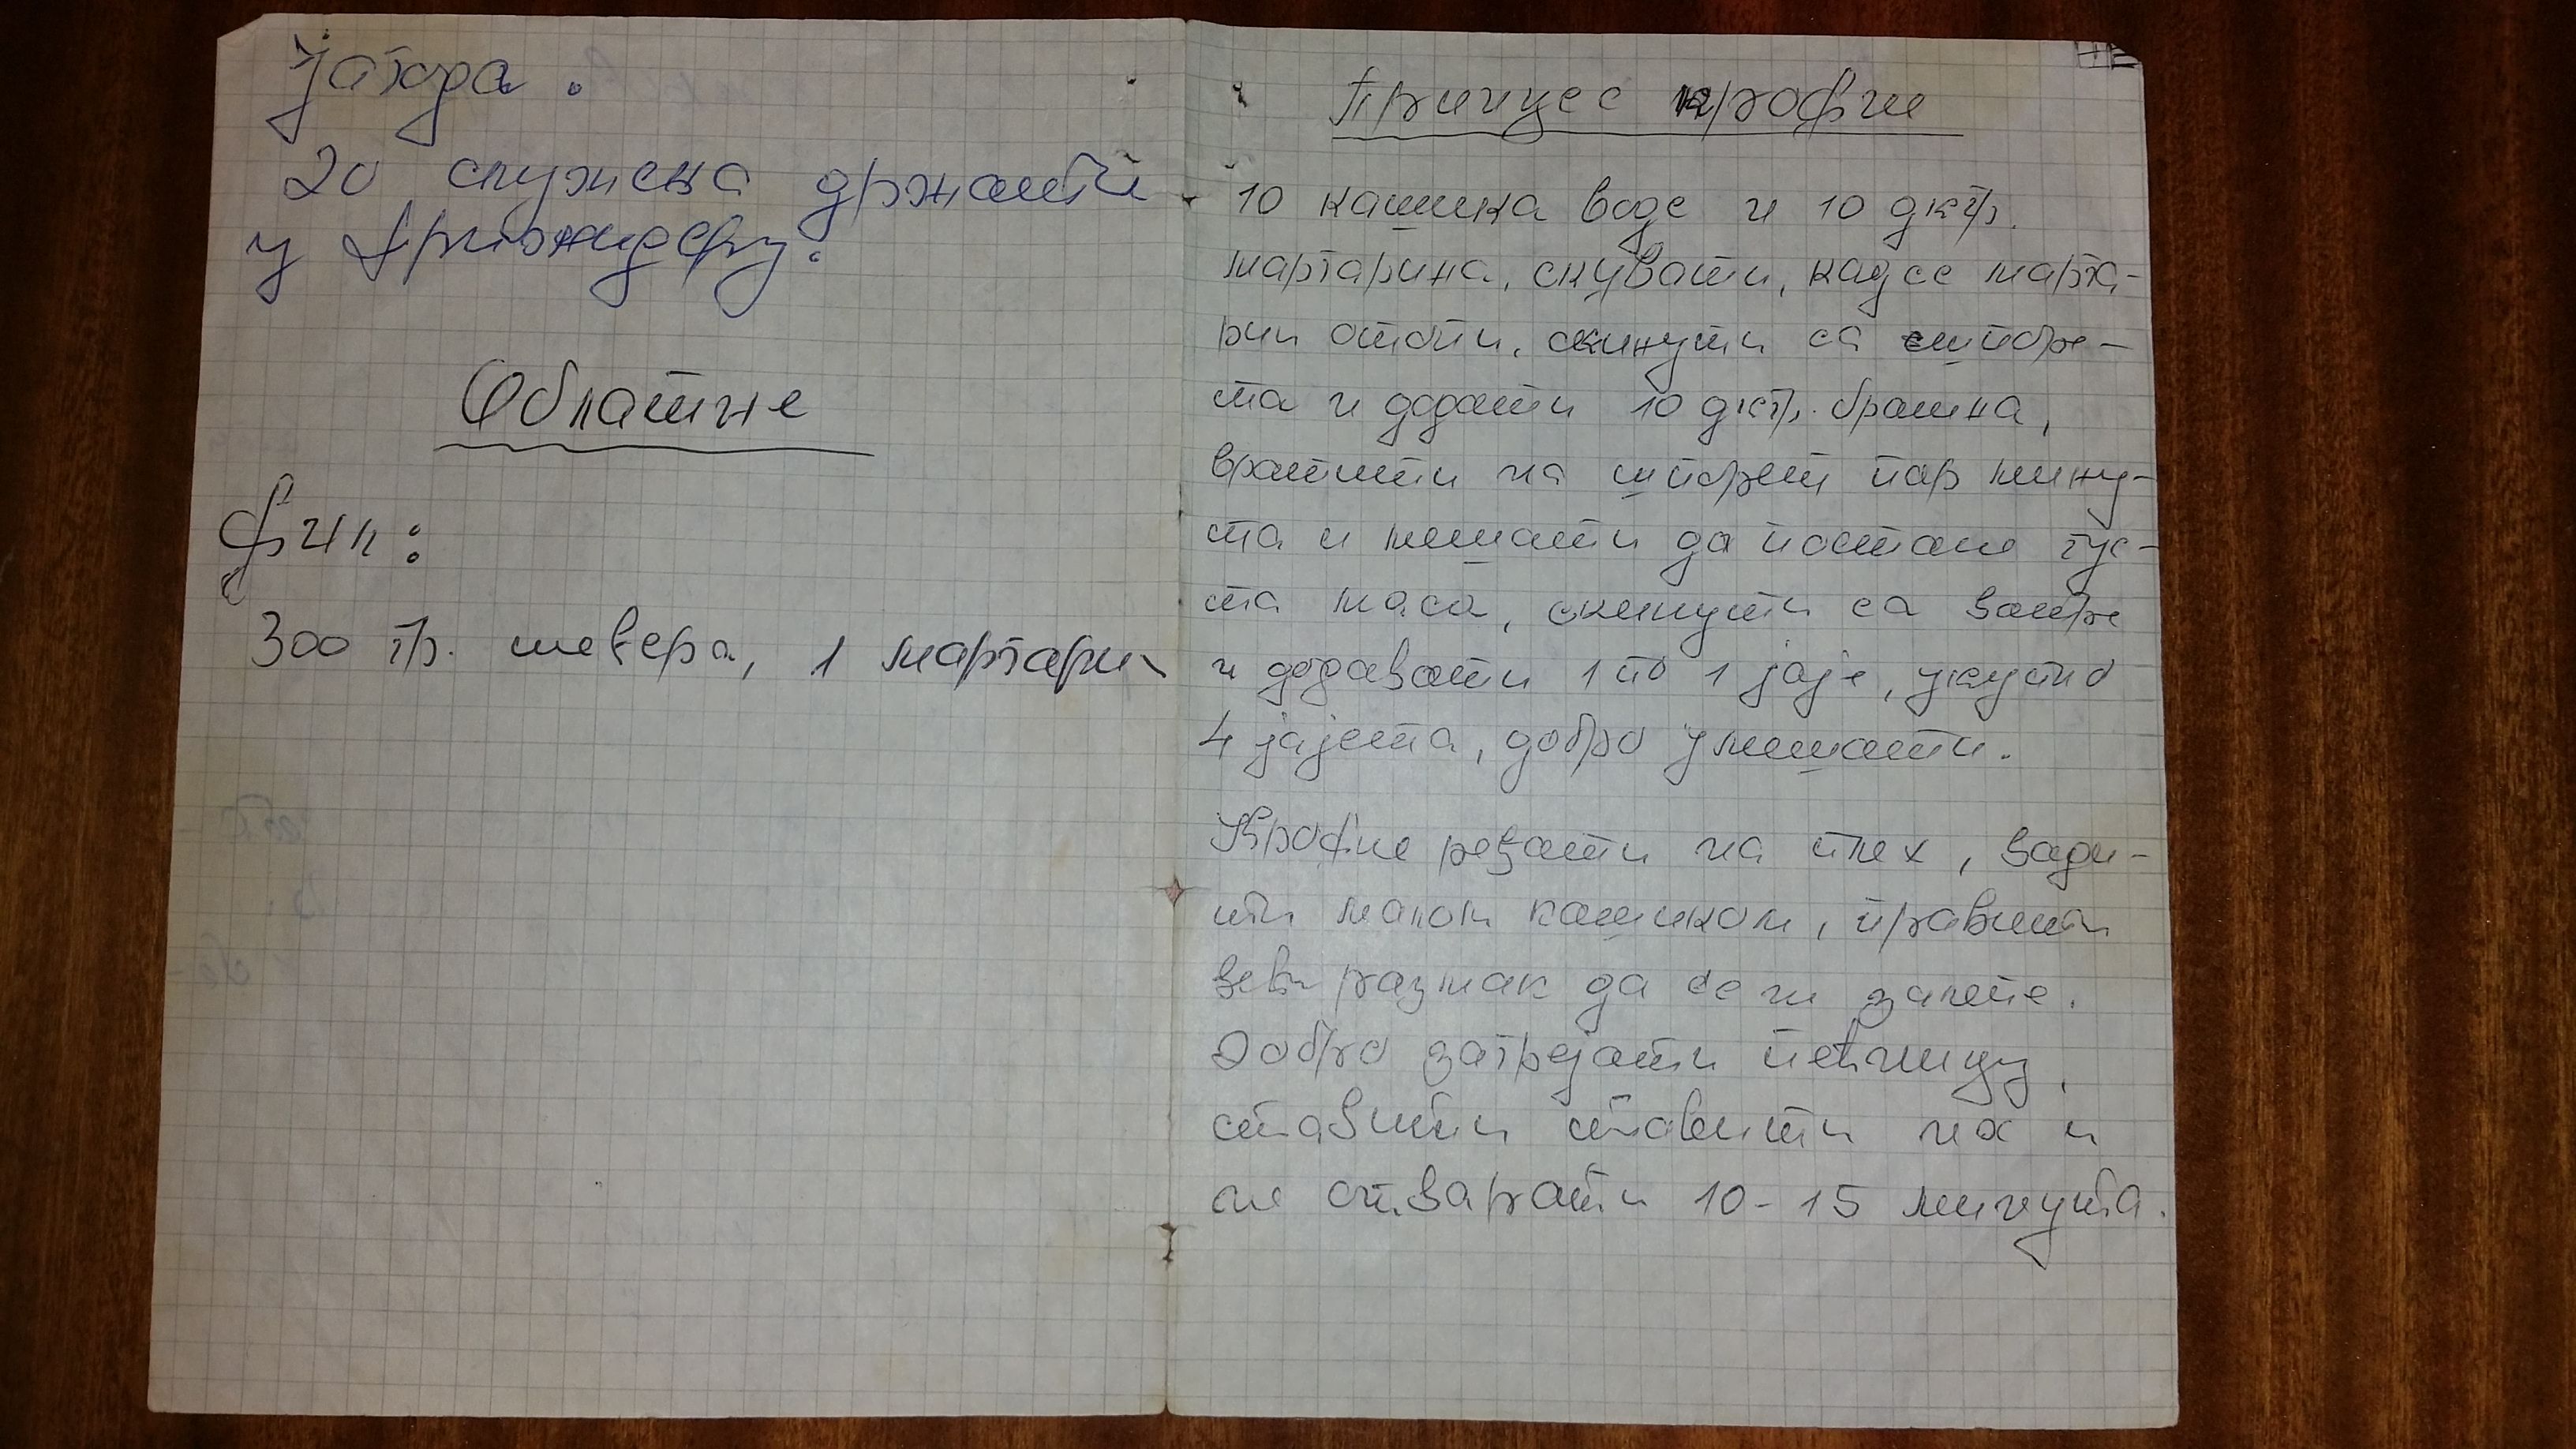 јагода.
20 служења држати
у фрижидеру.
Облатне
Фил:
300 гр. шећера, 1 маргарин
Принцес крофне
10 кашика воде и 10 дкгр.
маргарина, скувати, кад се марга-
рин отопи, скинути са шпоре-
та и додати 10 дкгр. брашна,
вратити на шпорет пар мину-
та и мешати да постане гус-
та маса, скинути са ватре
и додавати 1 по 1 јаје, укупно
4 јајета, добро умешати.
Крофне ређати на плех, вади-
ти малом кашиком, правити
већи размак да се не залепе.
Добро загрејати пећницу,
ставити ставити их и
не отварати 10-15 минута.